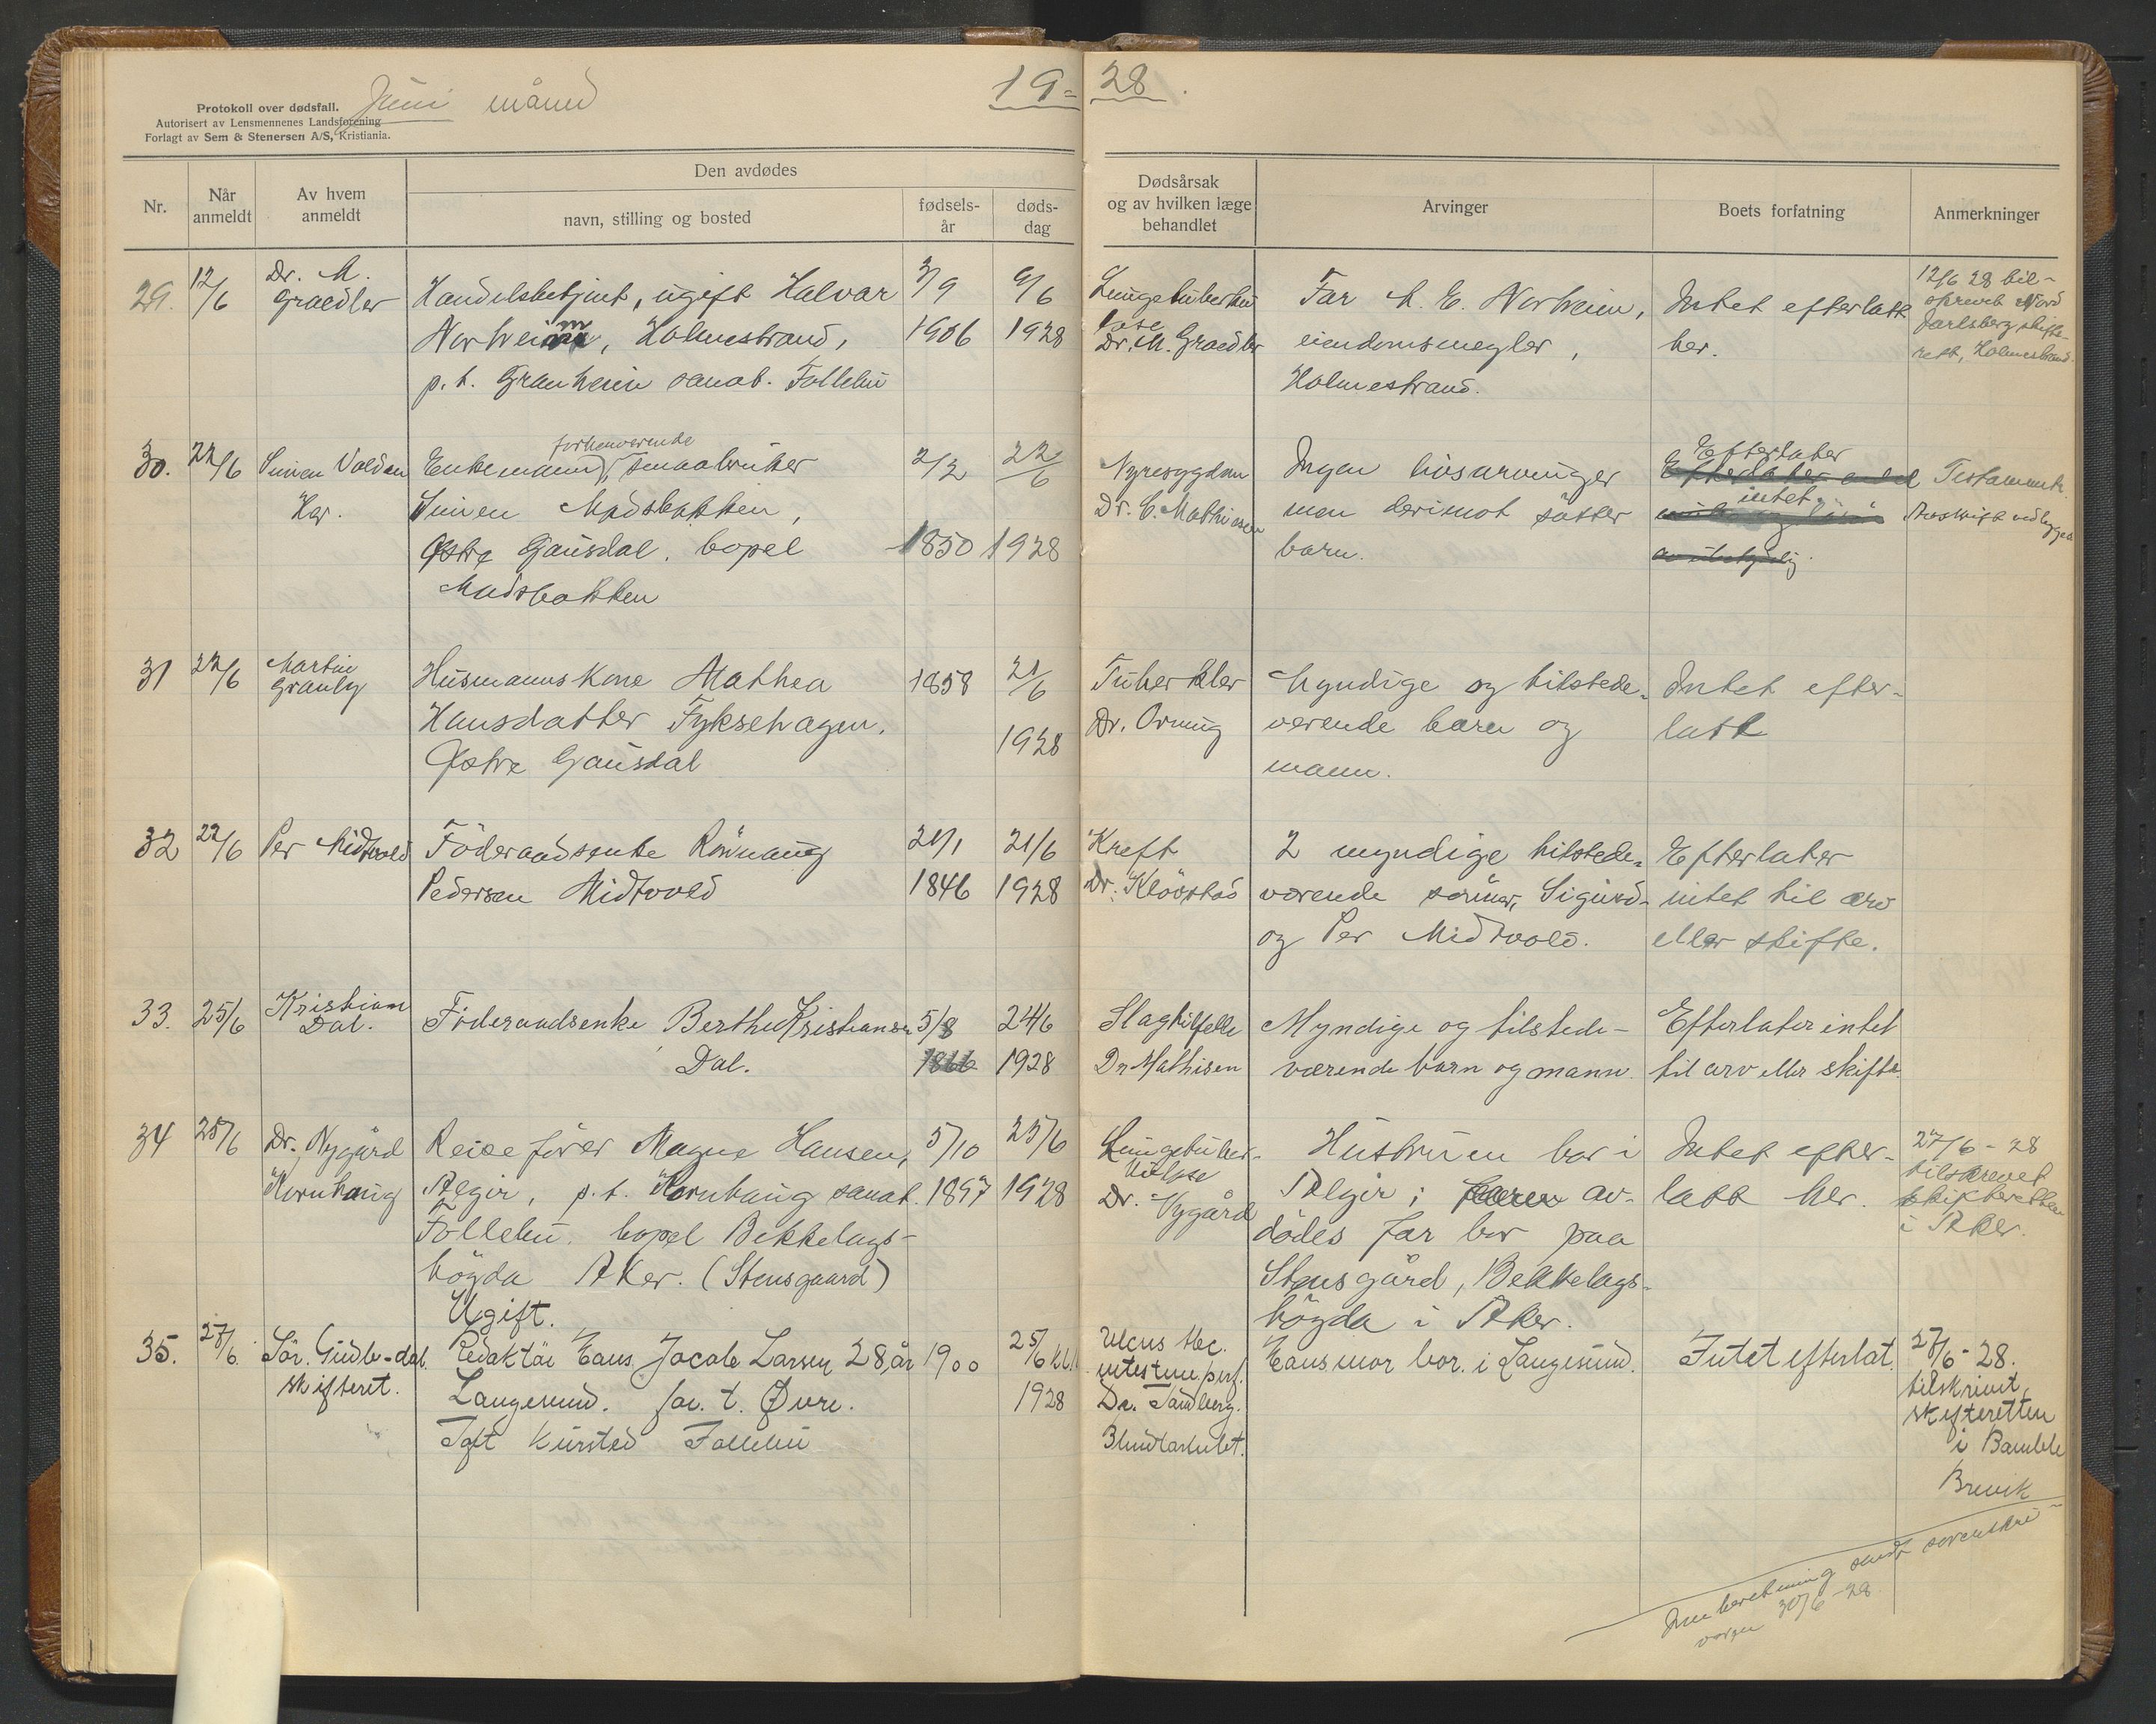 Protokoll over dødsfall.
Autorisert av Lensmennenes Landsforening
Forlagt av Sem & Stenersen A/S, Kristiania.
Juni måned
19-28.
Nr.
Når anmeldt
Av hvem anmeldt
Den avdødes
navn, stilling og bosted
fødsels-år
døds-dag
Dødsårsak og av hvilken læge behandlet
Arvinger
Boets forfatning
Anmerkninger
29. 12/6 Dr. M. Graedler
Handelsbetjent, ugift Halvar
Norheim, Holmestrand,
p. t. Granheim sanat. Follebu
3/9 1906
9/6 1928
Lungetuberku
lose
Dr. M. Graedler
Far M. E. Norheim,
eiendomsmegler,
Holmestrand.
Intet efterlatt
her.
12/6 28 til-
skrevet Nord
Jarlsberg skifte-
rett, Holmestrand.
30. 22/6 Simen Volden
Hør.
forhenværende
Enkemann, smaabruker
Simen Madsbakken,
Østre Gausdal, bopel
Madsbakken
2/2 1850
22/6 1928
Nyresygdom
Dr. C. Mathiesen
Ingen livsarvinger
men derimot søster
barn.
Efterlater
intet
Testamente.
Avskrift vedlygges
31 22/6 Martin
Granly
Husmannskone Mathea
Hansdatter Fyksehagen,
Østre Gausdal
1858
21/6 1928
Tuberkler
Dr. Orning
Myndige og tilstede-
værende barn og
mann.
Intet efter-
latt
32 22/6 Per Midtvold
Föderaadsenke Rönnaug
Pedersen Midtvold
21/1 1846
21/6 1928
Kreft
Dr. Klövstad
2 myndige tilstede-
værende sönner, Sigurd
og Per Midtvold.
Efterlater
intet til arv
eller skifte.
33. 25/6 Kristian
Dal.
Föderaadsenke Berthe Kristiansen
Dal.
5/8 1866
24/6 1928
Slagtilfelle
Dr Mathisen
Myndige og tilstede-
værende barn og mann.
Efterlater intet
til arv eller skifte.
34 25/6 Dr. Nygård
Kornhaug
Reisefører Magne Hansen,
Algir, p. t. Kornhaug sanat.
Follebu. bopel Bekkelags-
högda Aker. (Stensgaard)
Ugift.
5/10 1897
25/6 1928
Lungetuber-
kulose
Dr. Nygård
Hustruen bor i
Algir; av-
dödes far bor paa
Stensgård, Bekkelags-
högda i Aker.
Intet efter-
latt her.
27/6-28
tilskrevet
skifteretten
i Aker.
35. 27/6. Sör. Gudbr-dal.
skifteret.
Redaktör Hans Jacob Larsen 28 år
Langesund. for. t. Øvre.
Toft Kursted Follebu
1900
25/6 kl.
1928
Ulcus
intestine perf.
Dr. Sandberg.
Hans mor bor. i Langesund.
Intet efterlat.
27/6-28.
tilskrevet,
skifteretten
i Bamble
Brevik
Innberetning sendt sorenskri-
veren 30/6-28.